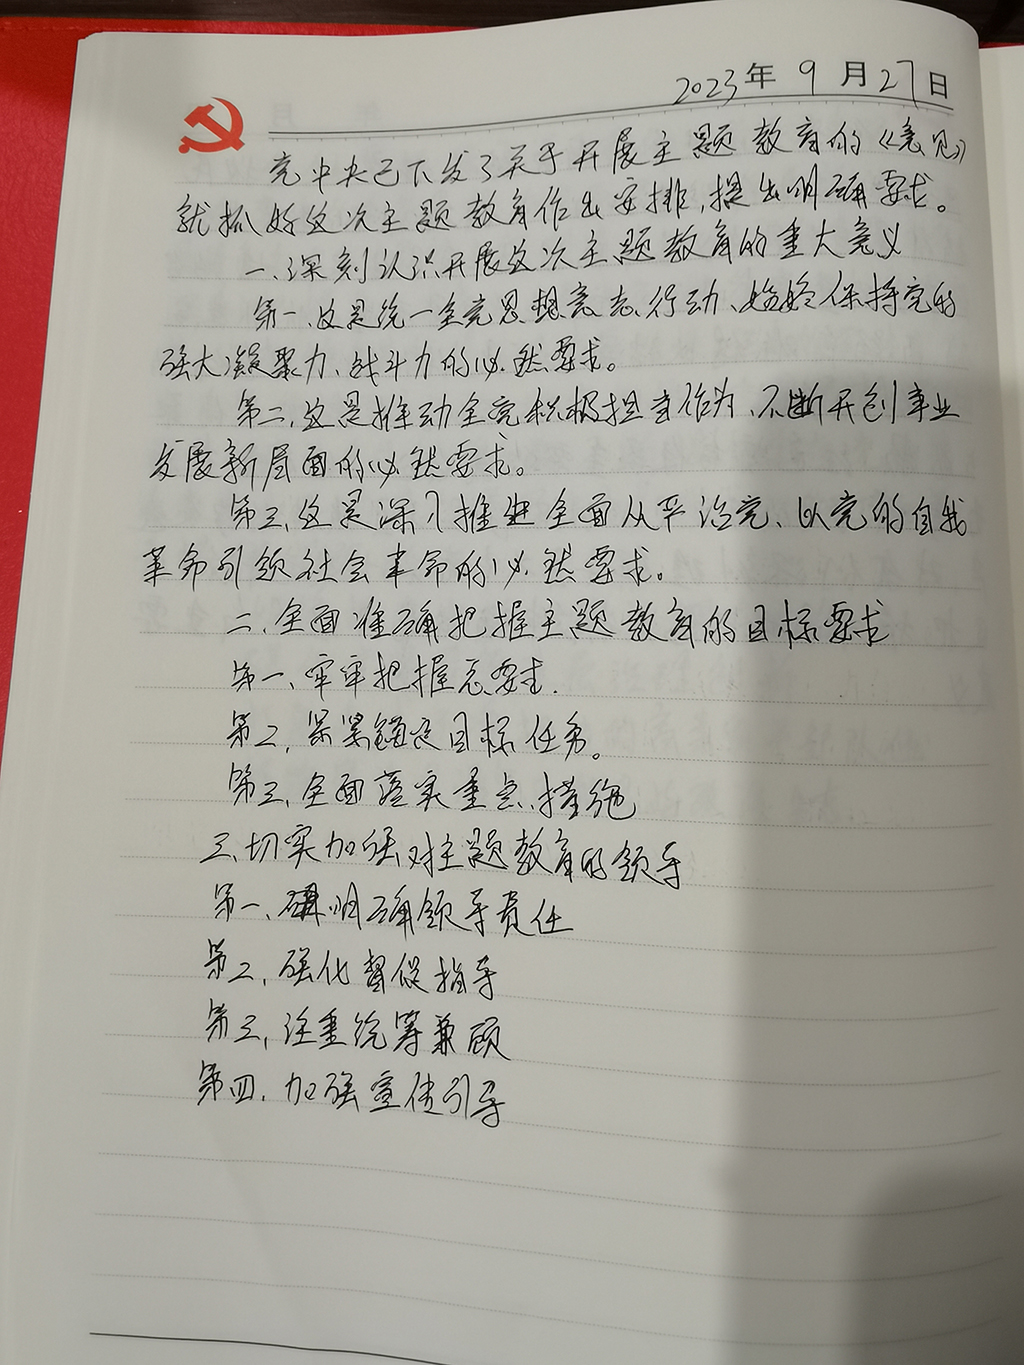 2023年9月27日
党中央已下发了关于开展主题教育的《意见》
就抓好这次主题教育作出安排,提出明确要求。
一、深刻认识开展这次主题教育的重大意义
第一、这是统一全党思想意志、行动、始终保持党的
强大凝聚力、战斗力的必然要求。
第二、这是推动全党积极担当作为、不断开创事业
发展新局面的必然要求。
第三、这是深入推进全面从严治党、以党的自我
革命引领社会革命的必然要求。
二、全面准确把握主题教育的目标要求
第一、牢牢把握总要求.
第二,紧紧锚定目标任务。
第三、全面落实重点措施
三、切实加强对主题教育的领导
第一、明确领导责任
第二,强化督促指导
第三,注重统筹兼顾
第四.加强宣传引导